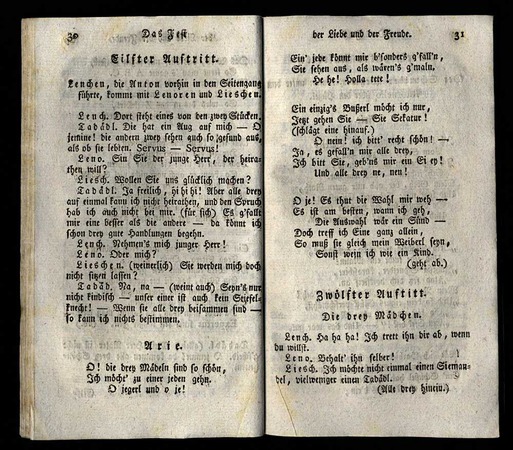 30 Das Fest
Eilfter Auftritt.
Lenchen, die Anton vorhin in den Seitengang
führte, kommt mit Lenoren und Lieschen.
Lench. Dort steht eines von den zwey Stücken.
Tadädl. Die hat ein Aug auf mich — O
jemine! die andern zwey sehen auch so gsund aus,
als ob sie lebten. Servus — Servus!
Leno. Sin Sie der junge Herr, der heira-
then will?
Liesch. Wollen Sie uns glücklich machen?
Tadädl. Ja freilich, hi hi hi! Aber alle drey
auf einmal kann ich nicht heirathen, und den Spruch
hab ich auch nicht bei mir. (für sich) Es g'fallt
mir eine besser als die andere — da könnt ich
schon drey gute Handlungen begehn.
Lench. Nehmen's mich junger Herr!
Leno. Oder mich?
Lieschen. (weinerlich) Sie werden mich doch
nicht sitzen lassen?
Tadäd. Na, na — (weint auch) Seyn's nur
nicht kindisch — unser einer ist auch kein Stiefel-
knecht! — Wenn sie alle drey beisammen sind —
so kann ich nichts bestimmen.
Arie.
O! die drey Mädeln sind so schön,
Ich möche' zu einer jeden gehn.
O jegerl und o je!
der Liebe und der Freude. 31
Ein' jede könnt mir b'sonders g'fall'n,
Sie sehen aus, als wären's g'maln.
He he! Holla tete!
Ein einzig's Busserl möcht ich nur,
Jetzt gehen Sie — Sie Sekatur!
(schlägt eine hinauf.)
O nein! ich bitt' recht schön! —
Ja, es gefall'n mir alle drey,
Ich bitt Sie, geb'ns mir ein Ei ey!
Und alle drey ne, neu!
O je! Es thut die Wahl mir weh —
Es ist am besten, wann ich geh,
Die Auswahl wär ein Sünd —
Doch treff ich Eine ganz allein,
So muß sie gleich mein Weiberl seyn,
Sonst wein ich wie ein Kind.
(geht ab.)
Zwölfter Auftritt.
Die drey Mädchen.
Lench. Ha ha ha! Ich trett ihn dir ab, wenn
du willst.
Leno. Behalt' ihn selber!
Liesch. Ich möchte nicht einmal einen Sieman-
del, vielweniger einen Tadädl.
(Alle drey hinein.)